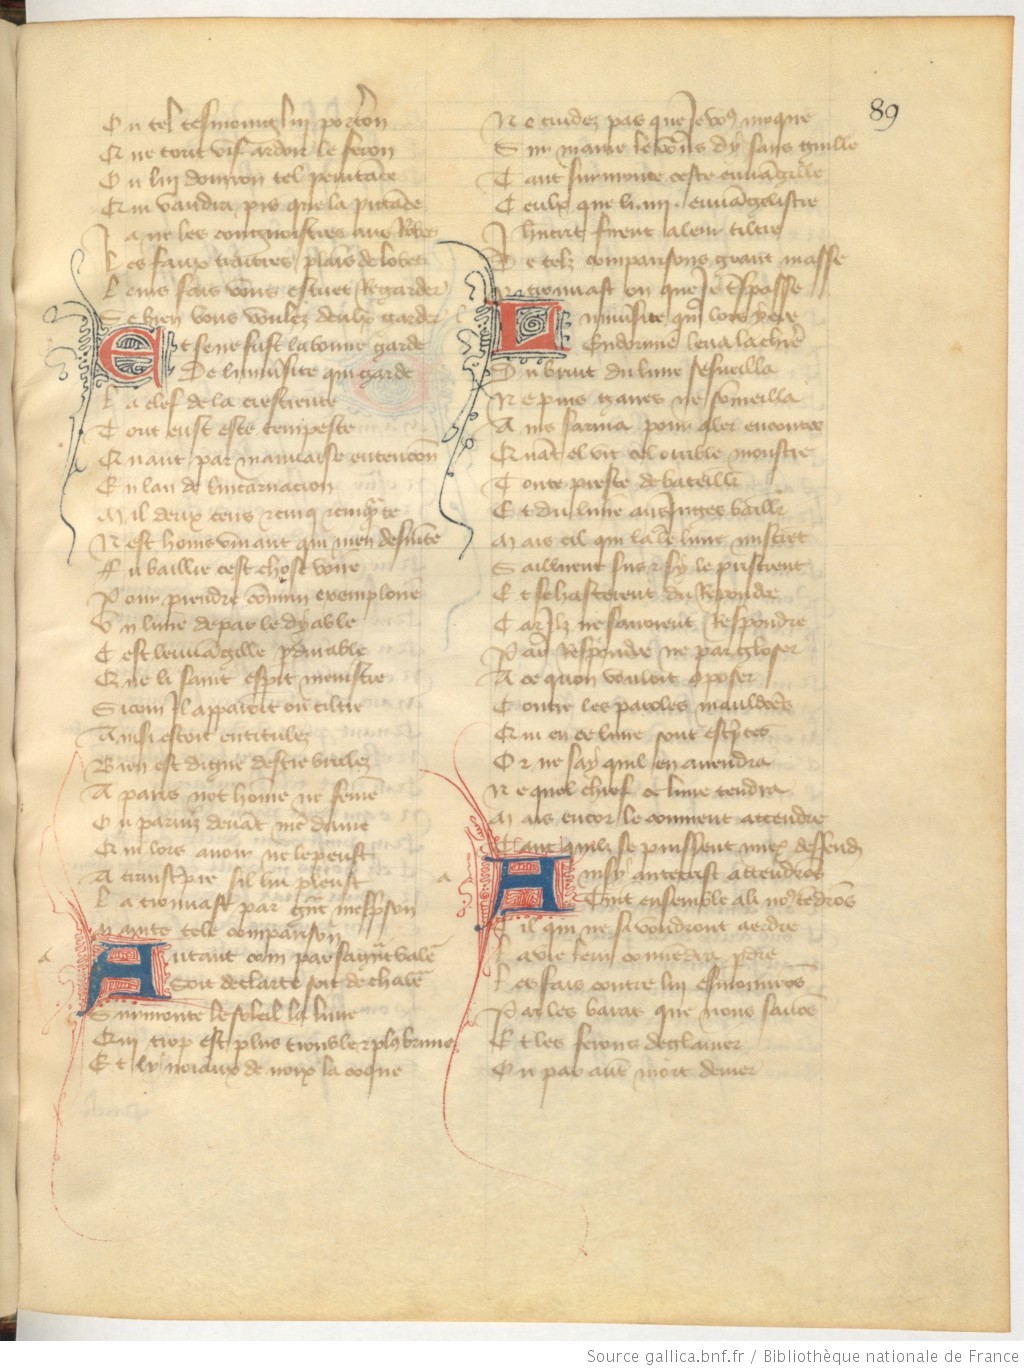 89
Ou tel tesmoing lui porteron
Que tout vif ardoir le feron
Ou lui donrron tel penitace
Qui vauldra pis que la pitāce
Ja ne les congnoistres aus Robes
Les faux traitres plais de lobes
Leurs fais vous estuet Regarder
Se bien vous voulez deulx garder
Et se ne fust la bonne garde
De luniūsite qui garde
La clef de la crestiente
Tout eust este tempeste
Quant par mauuaise entencōn
En lan de lincarnacion
Mil deux cens et cinq et cinqte
Nest homs viuant qui men desmēte
Fu baillie cest chose voire
Pour prendre cōmun exemploire
Un liure de par le dyable
Cest leuuāgille pdurable
Que li saint esprit menistre
Si com il apparoit ou tiltre
Ainsi estoit entitulez
Bien est digne destre brulez
A paris not homme ne feme
Ou paruis deuāt nrē dame
Qui lors auoir ne le peust
A trāscrire sil lui pleust
La trouuast par grāt mespson
Mainte tele comparison
a
Autant com par sa grāt valē
Soit de clarte soit de chalē
Surmonte le soleil la lune
Qui trop est plus trouble et plus brune
Et ly noiaux de noix la coque
Ne cuidez pas que je vous moque
Sur mame le vous dy sans guille
Tant surmonte ceste euuāgille
Ceulx que li .iiii. euuāgelistre
Jhucrist firent a leur tiltre
De telz comparisons grant masse
Y trouuast on que je trespasse
Luniūsite qui lors yere
Endormie leua la chierē
Du bruit du liure sesueilla
Ne puis gaires ne someilla
Ains sarma pour aler encontre
Quāt el vit cel orrible monstre
Toute preste de bateillr
Et du liure aus juges baillr
Mais cil qui la le liure mistrēt
Saillirent sus et sy le pristrent
Et se hasterent du Repondre
Car ilz ne sauoient Respondre
Par Respondre ne par gloser
A ce quon vouloit opposer
Contre les paroles mauldites
Qui en ce liure sont escrites
Or ne say quil en auendra
Ne quel chief ce liure tendra
Mais encor le conuient attendre
Tant quilz se puissent miex deffendr
a
Ainsy antecrist attendros
Tuit ensemble a li nos tēdrōs
Cil qui ne si vouldront aerdre
La vie leur conuēdra pdre
Les fais contre lui esmouurōs
Par les baras que nous sauōs
Et les ferons desglaiuer
Ou par autr mort deuier
Source gallica.bnf.fr / Bibliothèque nationale de France